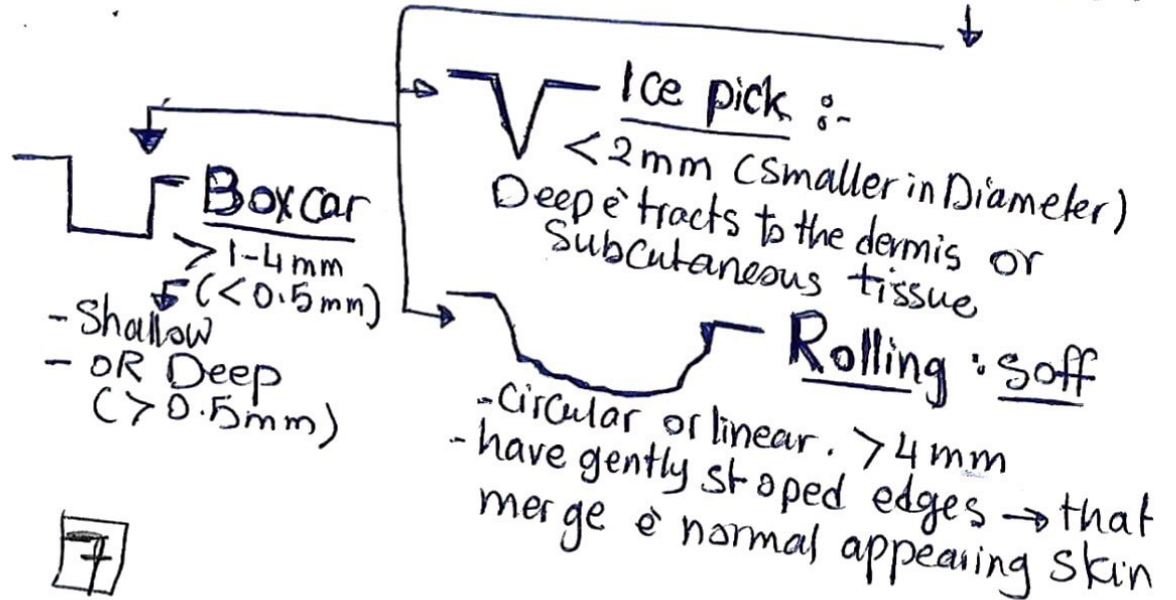 Ice pick :-
<2mm (Smaller in Diameter)
Deep è tracts to the dermis or
Subcutaneous tissue
Boxcar
>1-4mm
(<0.5mm)
- Shallow
- OR Deep
(>0.5mm)
Rolling : Soff
- Circular or linear. >4mm
- have gently stoped edges → that
merge è normal appearing skin
7